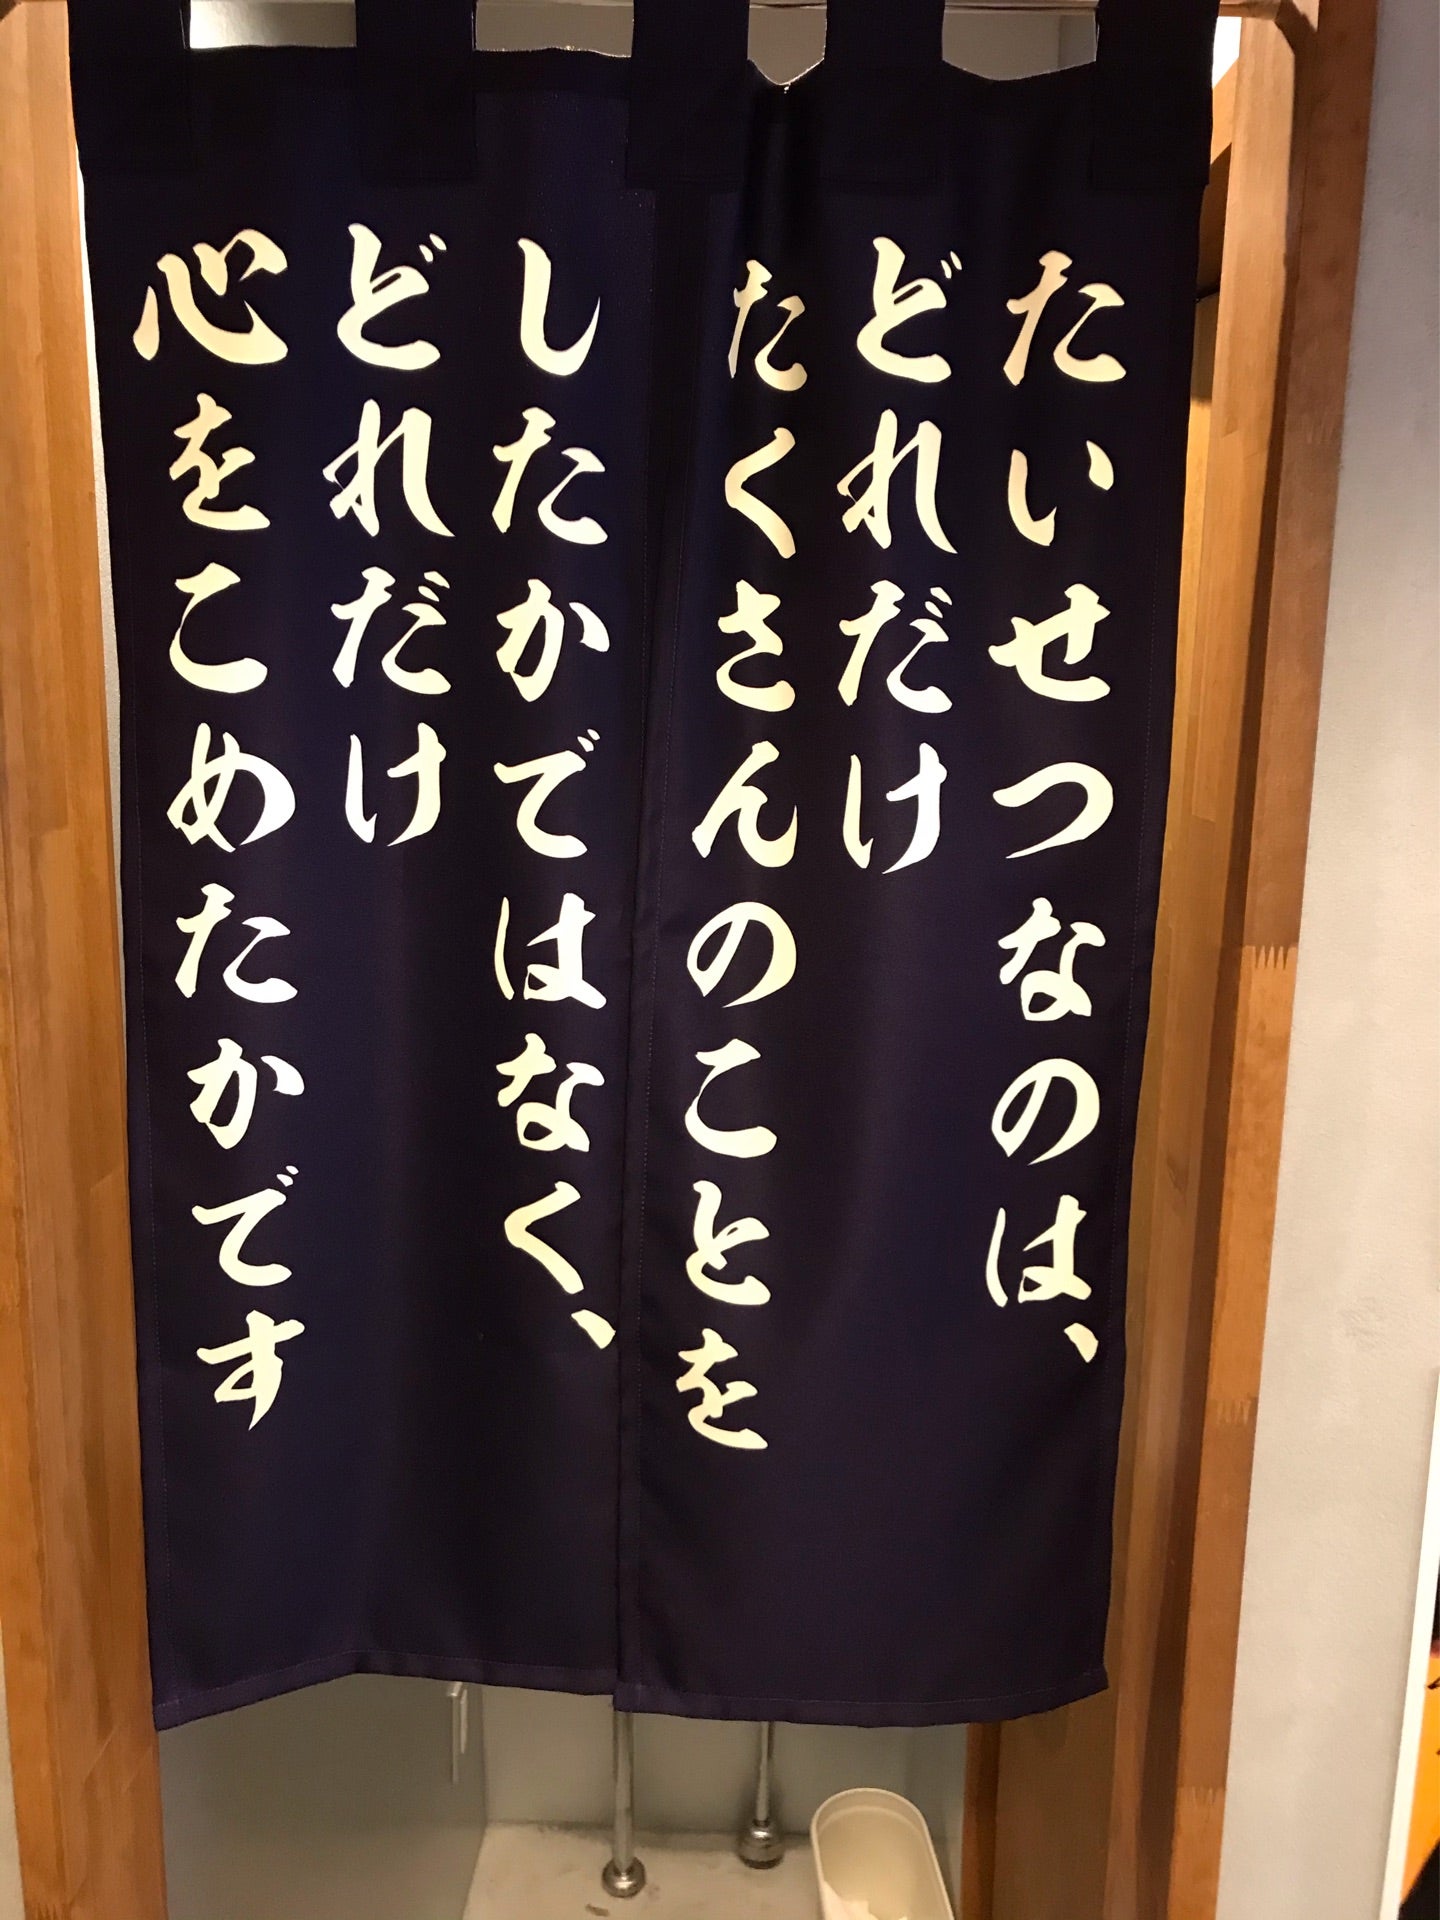 たいせつなのは、
どれだけ
たくさんのことを
したかではなく、
どれだけ
心をこめたかです